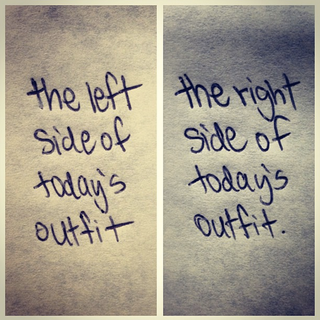 the left
side of
today's
outfit
the right
side of
today's
outfit.